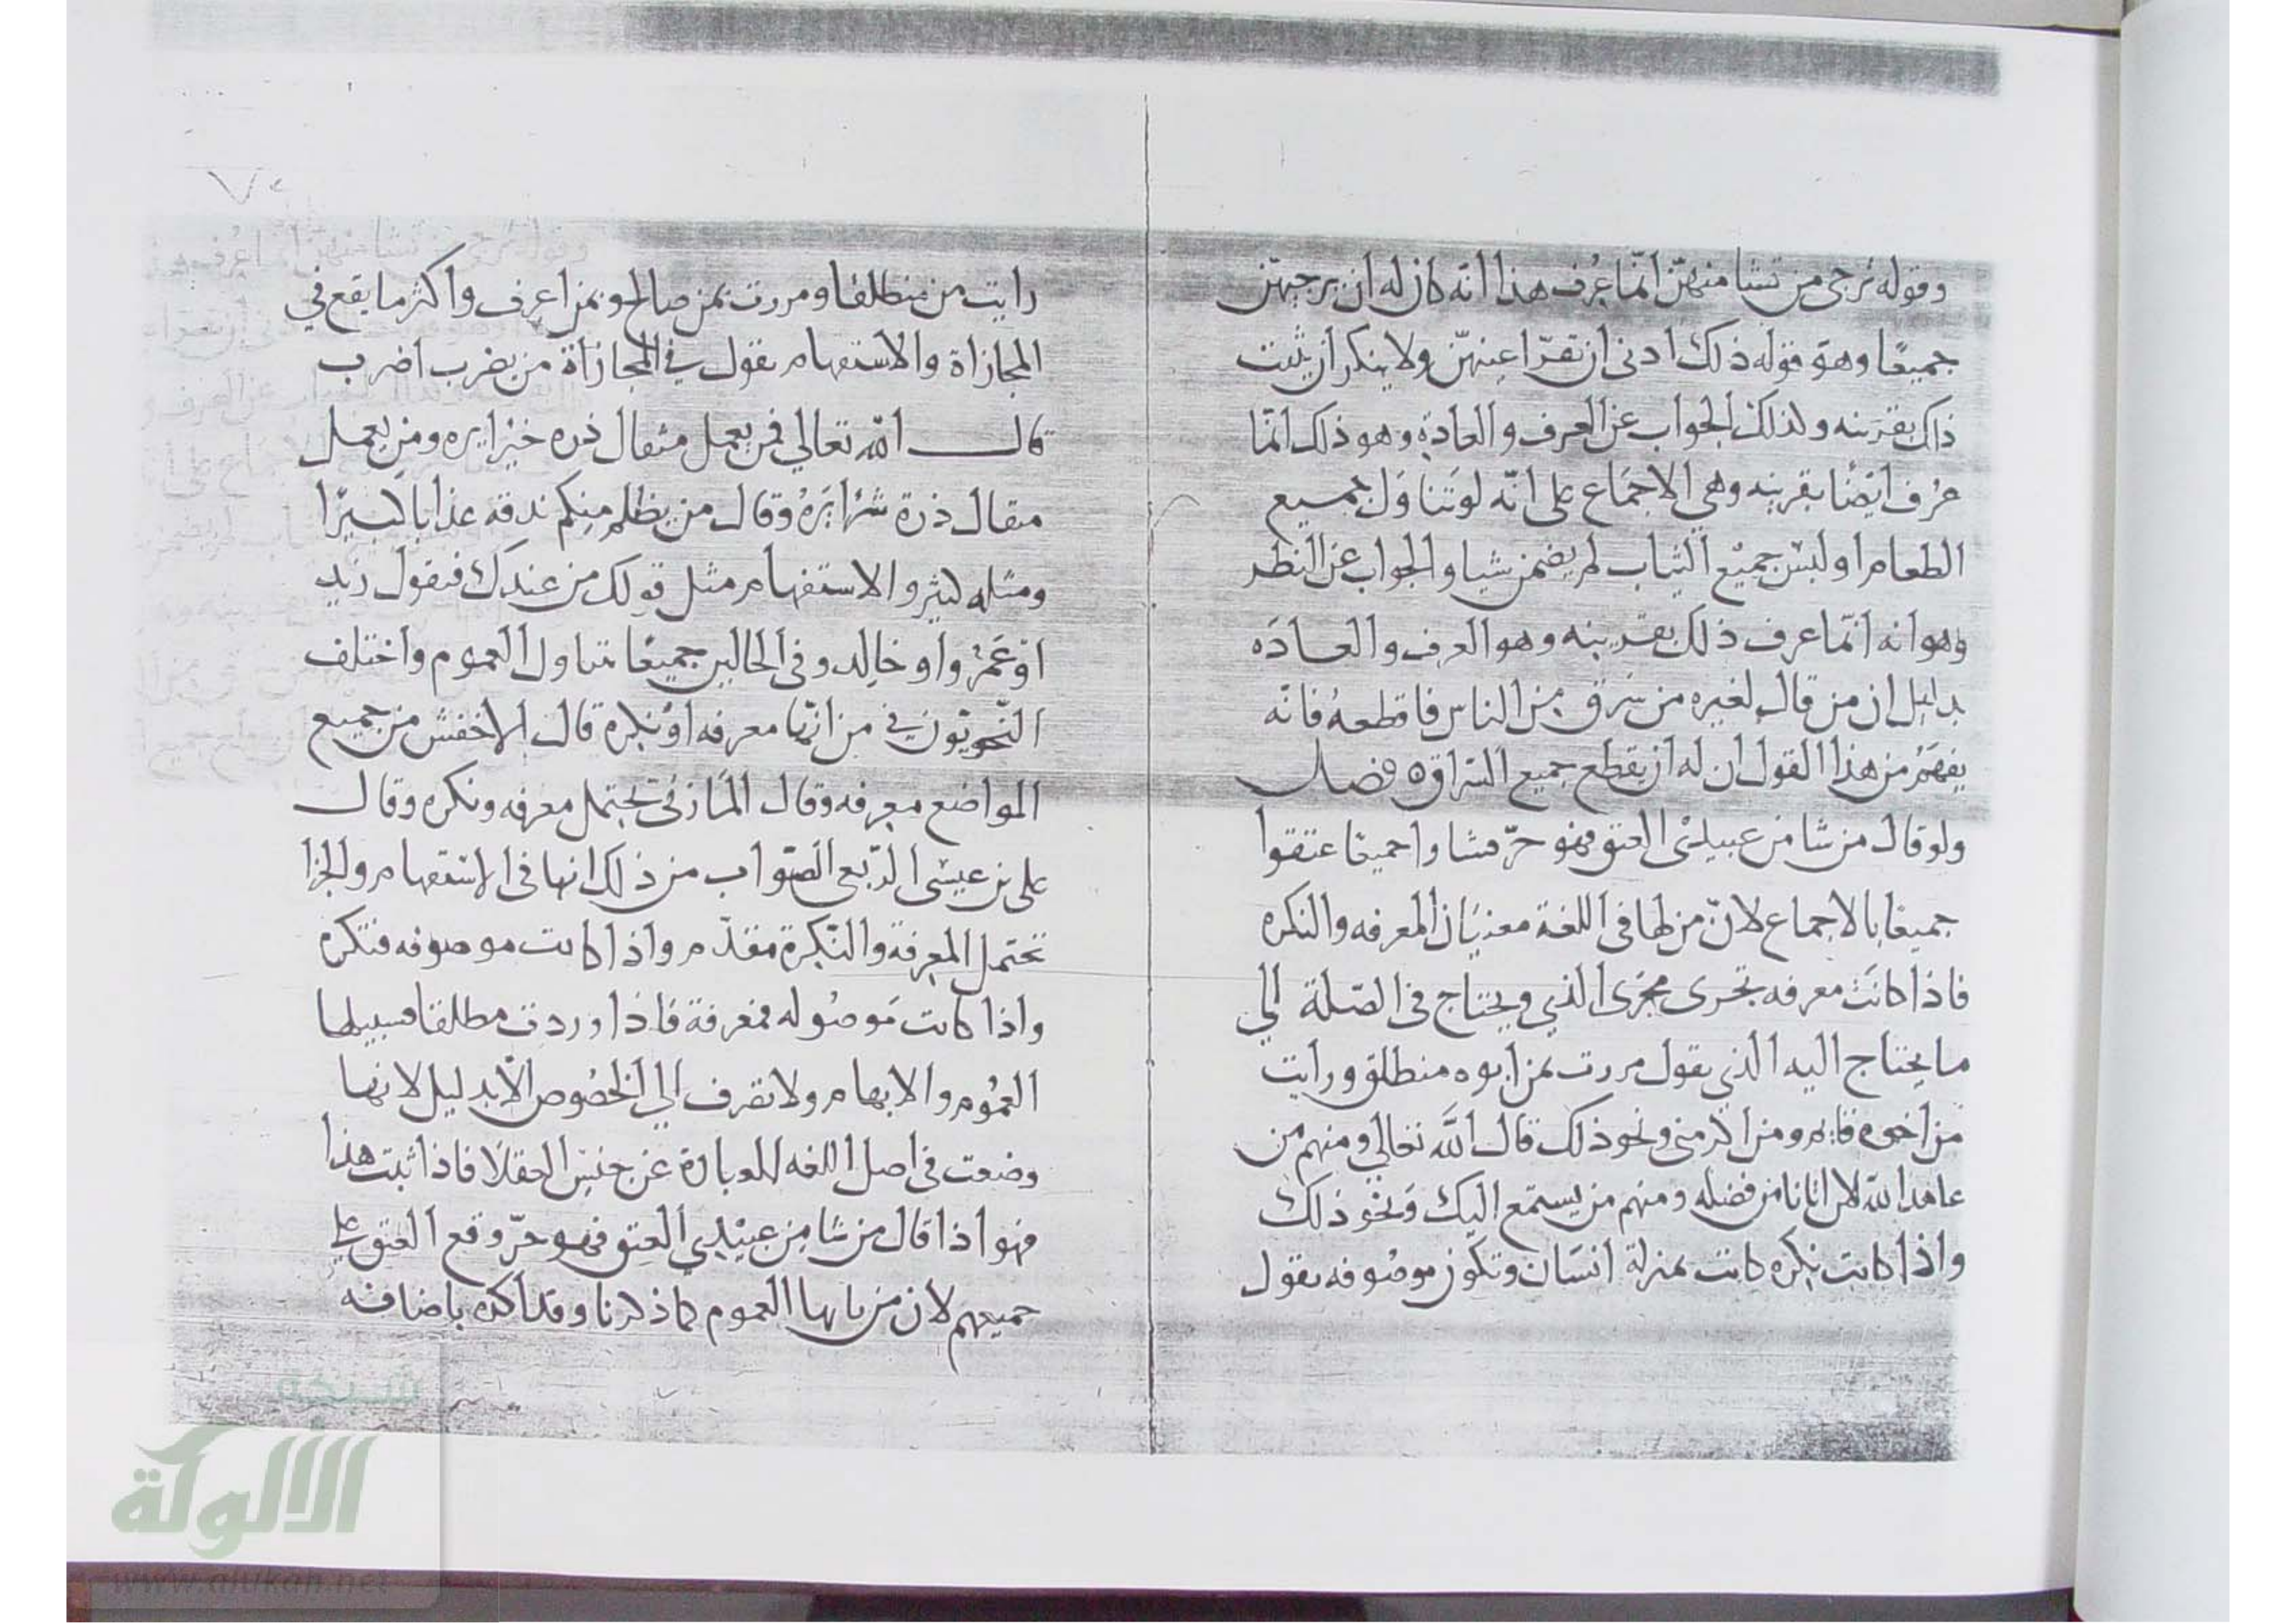 وقوله ترجى من تشا منهن انما عرف هذا انه كان له ان يرجيهن
جميعا وهو قوله ذلك ادنى ان تقر اعينهن ولا ينكر ان يثبت
ذاك بقرينه ولذلك الجواب عن العرف والعادة وهو ذلك انما
عرف ايضا بقرينه وهي الاجماع على انه لو تناول جميع
الطعام او لبس جميع الثياب لم يضمن شيا والجواب عن النظر
وهو انه انما عرف ذلك بقرينه وهو العرف والعاده
بدليل ان من قال لغيره من سرق من الناس فاقطعه فانه
يفهم من هذا القول ان له ان يقطع جميع السراق ه فصل
ولو قال من شا من عبيدي العتق فهو حر فشاوا جميعا عتقوا
جميعا بالاجماع لان من لها في اللغة معنيان المعرفه والنكره
فاذا كانت معرفه تجرى مجرى الذي ويحتاج في الصلة الي
ما يحتاج اليه الذي يقول مررت بمن ابوه منطلق ورايت
من اخوه قايم ومن اكرمني ونحو ذلك قال الله تعالي ومنهم من
عاهد الله لان اتانا من فضله ومنهم من يستمع اليك ونحو ذلك
واذا كانت نكره كانت بمنزلة انسان وتكون موصوفه يقول
رايت من منطلقا ومررت بمن صالح وبمن اعرف واكثر ما يقع في
المجازاة والاستفهام يقول في المجازاة من يضرب اضرب
قال الله تعالي فمن يعمل مثقال ذره خيرا يره ومن يعمل
مثقال ذرة شرا يره وقال من يظلم منكم ندقه عذابا كبيرا
ومثله كثير والاستفهام مثل قولك من عندك فيقول زيد
او عمرو او خالد وفي الحالين جميعا تناول العموم واختلف
النحويون في من انها معرفه او نكرة قال الاخفش من جميع
المواضع معرفه وقال المازني تحتمل معرفه ونكره وقال
علي بن عيسى الربعي الصواب من ذلك انها في الاستفهام والجزا
تحتمل المعرفة والنكرة مقدم واذا كانت موصوفه فنكره
واذا كانت موصوله فمعرفة فاذا وردت مطلقا فسبيلها
العموم والابهام ولا تصرف الي الخصوص الا بدليل لانها
وضعت في اصل اللغه للعبارة عن جنس العقلا فاذا ثبت هذا
فهو اذا قال من شا من عبيدي العتق فهو حر وقع العتق على
جميعهم لان من بابها العموم كما ذكرنا وقد اكده باضافته
شبكة
الألوكة
www.alukah.net